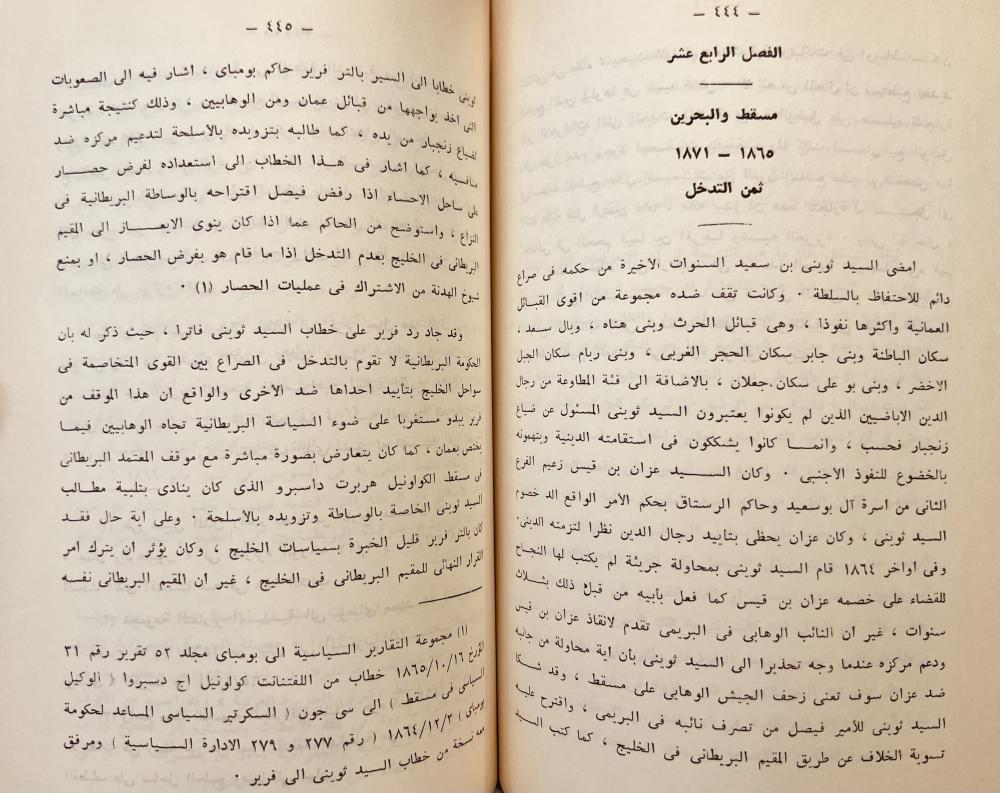 — ٤٤٤ —
الفصل الرابع عشر
مسقط والبحرين
١٨٦٥ – ١٨٧١
ثمن التدخل
امضى السيد ثوينى بن سعيد السنوات الاخيرة من حكمه فى صراع
دائم للاحتفاظ بالسلطة ٠ وكانت تقف ضده مجموعة من اقوى القبائل
العمانية واكثرها نفوذا ، وهى قبائل الحرث وبنى هناه ، وبال سعد ،
سكان الباطنة وبنى جابر سكان الحجر الغربى ، وبنى ريام سكان الجبل
الاخضر ، وبنى بو على سكان جعلان ، بالاضافة الى فئة المطاوعة من رجال
الدين الاباضيين الذين لم يكونوا يعتبرون السيد ثوينى المسئول عن ضياع
زنجبار فحسب ، وانمــا كانوا يشككون فى استقامته الدينية ويتهمونه
بالخضوع للنفوذ الاجنبى ٠ وكان الســـيد عزان بن قيس زعيم الفرع
الثانى من اسرة آل بوسعيد وحاكم الرستاق بحكم الأمر الواقع الد خصوم
السيد ثوينى ، وكان عزان يحظى بتأييد رجال الدين نظرا لتزمته الدينى٠
وفى اواخر ١٨٦٤ قام السيد ثوينى بمحاولة جريئة لم يكتب لها النجاح
للقضاء على خصمه عزان بن قيس كما فعل بأبيه من قبل ذلك بثــلاث
سنوات ، غير ان النائب الوهابى فى البريمى تقدم لانقاذ عزان بن قيس
ودعم مركزه عندما وجه تحذيرا الى السيد ثوينى بان اية محاولة من جانبه
ضد عزان سوف تعنى زحف الجيش الوهابى على مسقط ، وقد شــكا
السيد ثوينى للأمير فيصل من تصرف نائبه فى البريمى ، واقترح عليه
تسوية الخلاف عن طريق المقيم البريطانى فى الخليج ، كما كتب السيد
— ٤٤٥ —
ثوينى خطابا الى السير بالتر فرير حاكم بومباى ، أشار فيه الى الصعوبات
التى اخذ يواجهها من قبائل عمان ومن الوهابيين ، وذلك كنتيجة مباشرة
لضياع زنجبار من يده ، كما طالبه بتزويده بالأسلحة لتدعيم مركزه ضد
منافسيه ، كما اشار فى هــذا الخطاب الى استعداده لفرض حصــار
على ساحل الاحساء اذا رفض فيصل اقتراحه بالوساطة البريطانية فى
النزاع ، واستوضح من الحاكم عما اذا كان ينوى الايعــاز الى المقيم
البريطانى فى الخليج بعدم التدخل اذا ما قام هو بفرض الحصار ، او بمنع
شيوخ الهدنة من الاشتراك فى عمليات الحصار (١) ٠
وقد جاد رد فرير على خطاب السيد ثوينى فاترا ، حيث ذكر له بان
الحكومة البريطانية لا تقوم بالتدخل فى الصراع بين القوى المتخاصمة فى
سواحل الخليج بتأييد احداها ضد الأخرى والواقع ان هذا الموقف من
فرير يبدو مستغربا على ضوء السياسة البريطانية تجاه الوهابيين فيمـا
يختص بعمان ، كما كان يتعارض بصورة مباشرة مع موقف المعتمد البريطانى
فى مسقط الكولونيل هربرت داسبرو الذى كان ينادى بتلبية مطـالب
السيد ثوينى الخاصة بالوساطة وتزويده بالأسلحة ٠ وعلى اية حال فقــد
كان بالتر فرير قليل الخبرة بسياسات الخليج ، وكان يؤثر ان يترك امر
القرار النهائى للمقيم البريطانى فى الخليج ، غير ان المقيم البريطانى نفسه
(١) مجموعة التقارير السياسية الى بومباى مجلد ٥٢ تقرير رقم ٣١
المؤرخ ١٨٦٥/١٠/١٦ خطاب من اللفتنانت كولونيل اج دسبروا ( الوكيل
السياسى فى مسقط ) الى سى جون ( السكرتير السياسى المساعد لحكومة
بومباى ) ١٨٦٤/١٢/٢ ( رقم ٢٧٧ و ٢٧٩ الادارة السياسية ) ومرفق
معه نسخة من خطاب السيد ثوينى الى فرير ٠